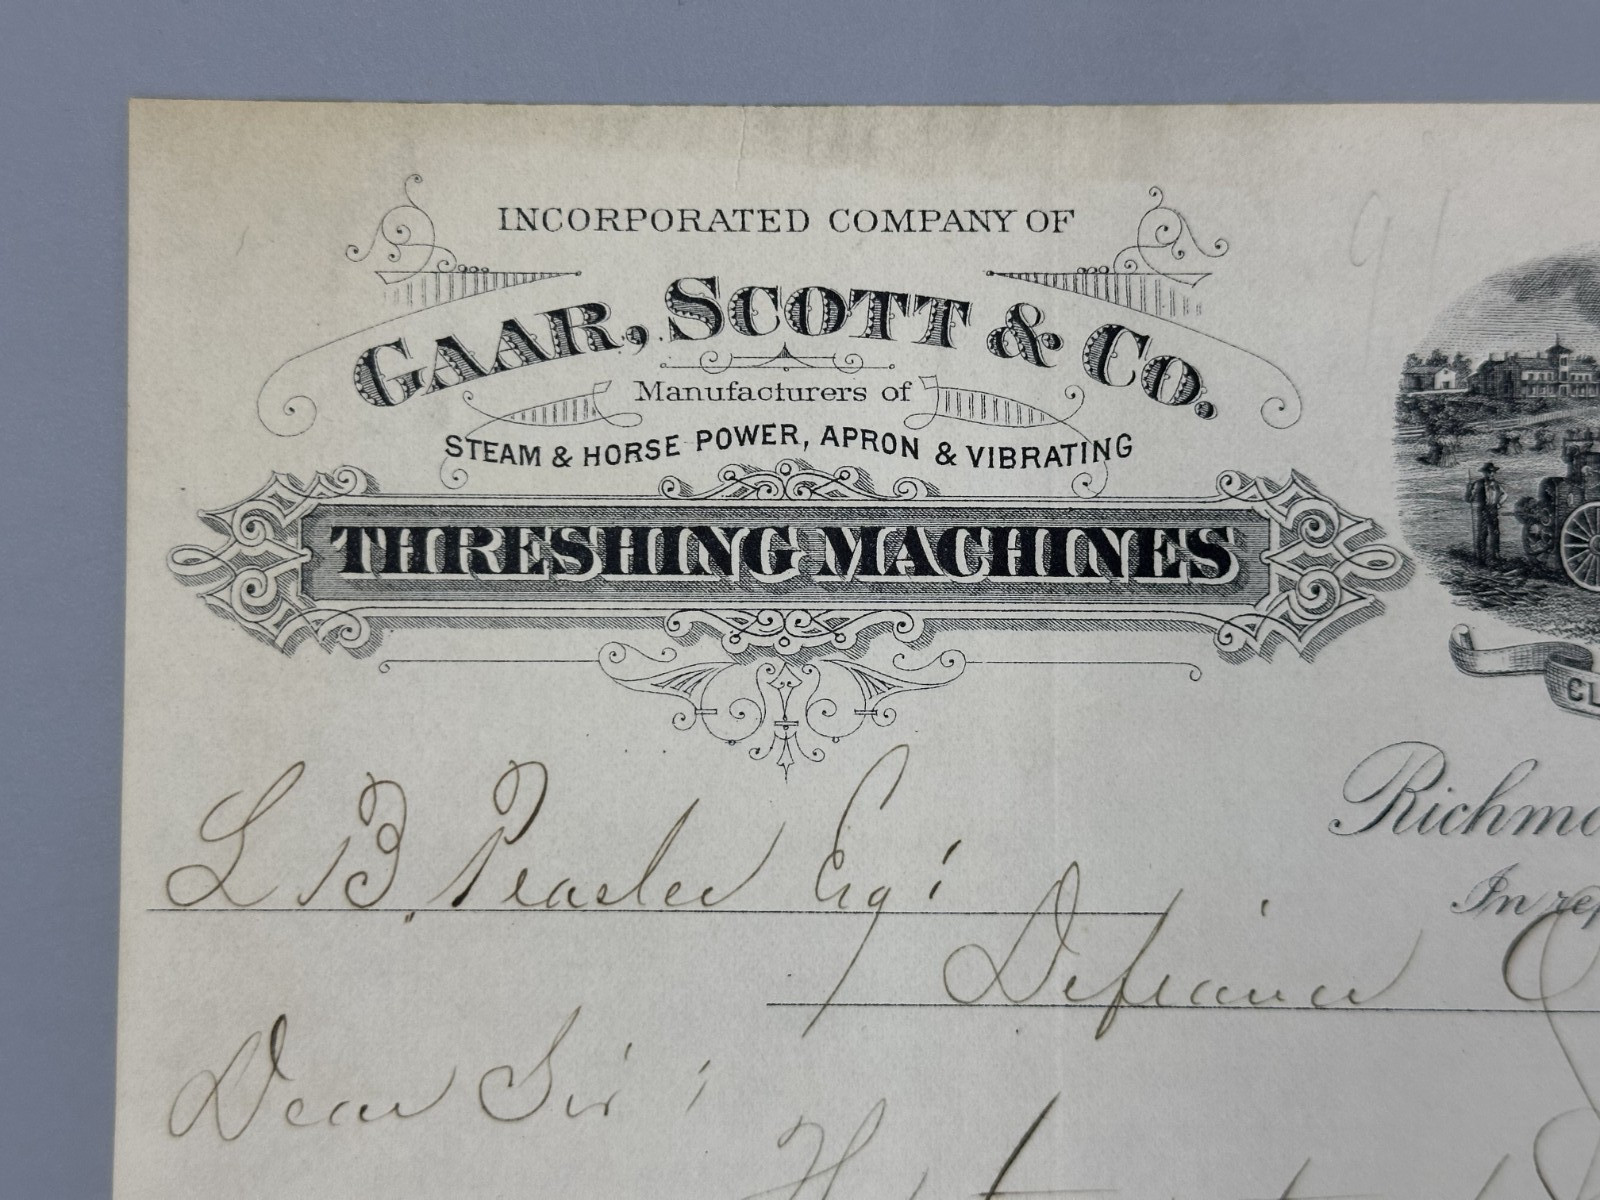 INCORPORATED COMPANY OF
GAAR, SCOTT & CO.
Manufacturers of
STEAM & HORSE POWER, APRON & VIBRATING
THRESHING MACHINES
CL
Richmo
In rep
L B. Peaslee Esq:
Defiance O
Dear Sir: